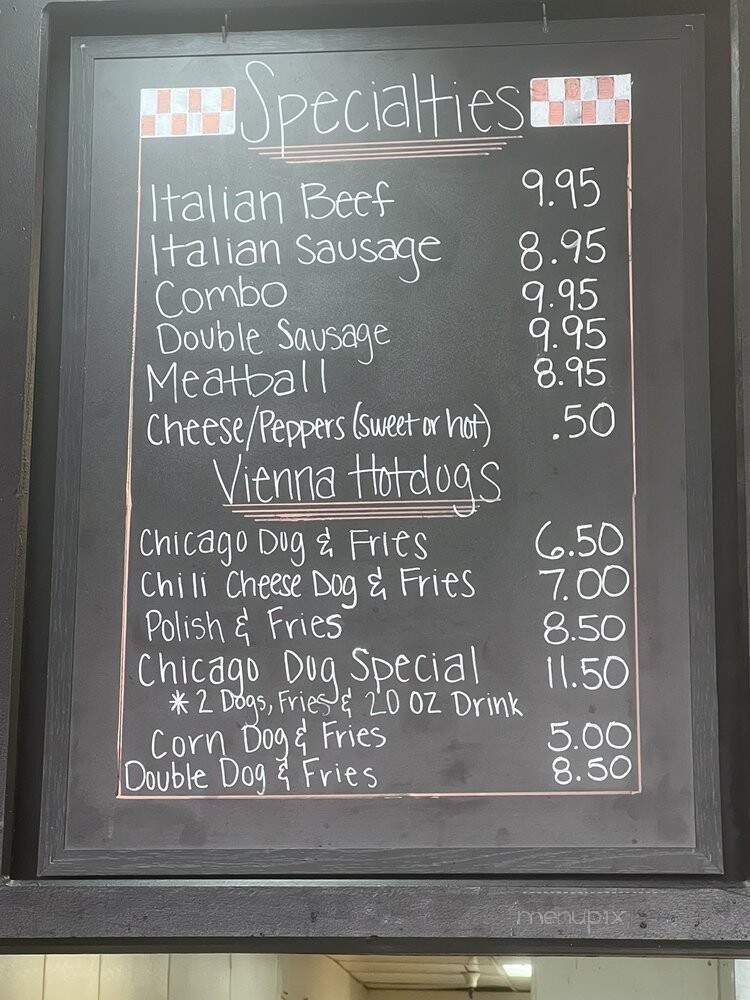 Specialties
Italian Beef 9.95
Italian Sausage 8.95
Combo 9.95
Double Sausage 9.95
Meatball 8.95
Cheese/Peppers (sweet or hot) .50
Vienna Hotdogs
Chicago Dog & Fries 6.50
Chili Cheese Dog & Fries 7.00
Polish & Fries 8.50
Chicago Dog Special 11.50
* 2 Dogs, Fries & 20 OZ Drink
Corn Dog & Fries 5.00
Double Dog & Fries 8.50
menupix